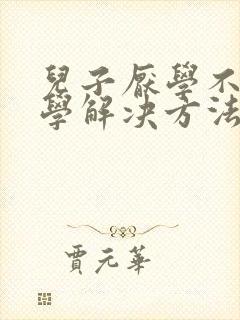 兒子厭學不
學解决方法
賈元華